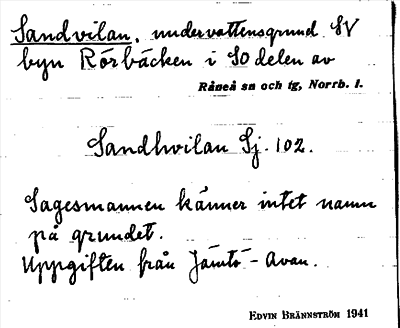 Sandvilan, undervattensgrund SV
byn Rörbäcken i SO delen av
Råneå sn och tg, Norrb. l.
Sandhvilan Sj. 102.
Sagesmannen känner intet namn
på grundet.
Uppgiften från Jämtö-Avan.
EDVIN BRÄNNSTRÖM 1941